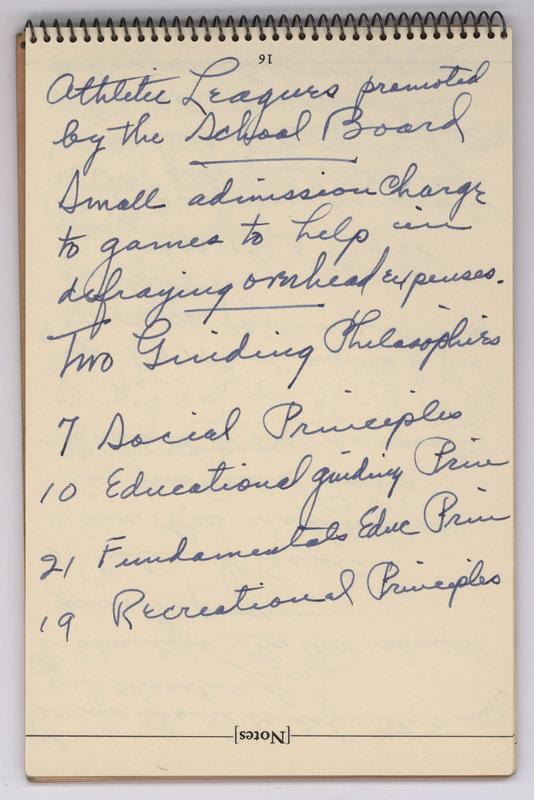 16
Athletic Leagues promoted
by the School Board
Small admission Charge
to games to help in
defraying overhead expenses.
Two Guiding Philosophies
7 Social Principles
10 Educational guiding Prin
21 Fundamentals Educ Prin
19 Recreational Principles
[Notes]